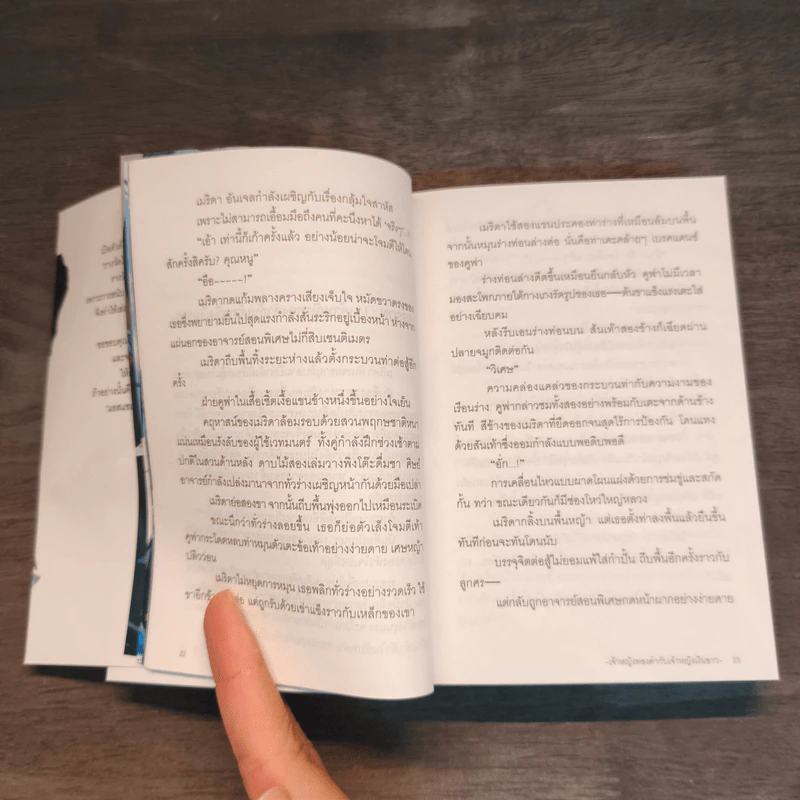 เมริดา อันเจลกำลังเผชิญกับเรื่องกลุ้มใจสาหัส
เพราะไม่สามารถเอื้อมมือถึงคนที่คะนึงหาได้ 'จริงๆ'
"เอ้า เท่านี้ก็เก้าครั้งแล้ว อย่างน้อยน่าจะโจมตีให้โดน
สักครั้งสิครับ? คุณหนู"
"อือ-----!"
เมริดากดแก้มพลางครางเสียงเจ็บใจ หมัดขวาตรงของ
เธอซึ่งพยายามยื่นไปสุดแรงกำลังสั่นระริกอยู่เบื้องหน้า ห่างจาก
แผ่นอกของอาจารย์สอนพิเศษไม่กี่สิบเซนติเมตร
เมริดาถีบพื้นทิ้งระยะห่างแล้วตั้งกระบวนท่าต่อสู้อีก
ครั้ง
ฝ่ายคูฟาในเสื้อเชิ้ตเงื้อแขนข้างหนึ่งขึ้นอย่างใจเย็น
คฤหาสน์ของเมริดาล้อมรอบด้วยสวนพฤกษชาติหนา
แน่นเหมือนรังลับของผู้ใช้เวทมนตร์ ทั้งคู่กำลังฝึกช่วงเช้าตาม
ปกติในสวนด้านหลัง ดาบไม้สองเล่มวางพิงโต๊ะดื่มชา ศิษย์
อาจารย์กำลังเปล่งมานาจากทั่วร่างเผชิญหน้ากันด้วยมือเปล่า
เมริดาย่อสองขา จากนั้นถีบพื้นพุ่งออกไปเหมือนระเบิด
ขณะนึกว่าทั่วร่างลอยขึ้น เธอก็ย่อตัวเล็งโจมตีเท้า
คูฟากระโดดหลบท่าหมุนตัวเตะข้อเท้าอย่างง่ายดาย เศษหญ้า
ปลิวว่อน
เมริดาไม่หยุดการหมุน เธอพลิกทั่วร่างอย่างรวดเร็ว ใช้
ขาอีกข้าง แต่ถูกรับด้วยเข่าแข็งราวกับเหล็กของเขา
22
เมริดาใช้สองแขนประคองท่าร่างที่เหมือนล้มบนพื้น
จากนั้นหมุนร่างท่อนล่างต่อ นั่นคือท่าเตะคล้ายๆ เบรคแดนซ์
ของคูฟา
ร่างท่อนล่างดีดขึ้นเหมือนยืนกลับหัว คูฟาไม่มีเวลา
มองสะโพกภายใต้กางเกงรัดรูปของเธอ—ต้นขาแข็งแรงเตะใส่
อย่างเฉียบคม
หลังรีบเอนร่างท่อนบน ส้นเท้าสองข้างก็เฉียดผ่าน
ปลายจมูกติดต่อกัน
"วิเศษ"
ความคล่องแคล่วของกระบวนท่ากับความงามของ
เรือนร่าง คูฟากล่าวชมทั้งสองอย่างพร้อมกับเตะจากด้านข้าง
ทันที สีข้างของเมริดาที่ยืดออกจนสุดไร้การป้องกัน โดนแทง
ด้วยส้นเท้าซึ่งออมกำลังแบบพอดิบพอดี
"อั่ก...!"
การเคลื่อนไหวแบบผาดโผนแฝงด้วยการข่มขู่และสกัด
กั้น ทว่า ขณะเดียวกันก็มีช่องโหว่ใหญ่หลวง
เมริดากลิ้งบนพื้นหญ้า แต่เธอตั้งท่าลงพื้นแล้วยืนขึ้น
ทันทีก่อนจะทันโดนนับ
บรรจุจิตต่อสู้ไม่ยอมแพ้ใส่กำปั้น ถีบพื้นอีกครั้งราวกับ
ลูกศร—
แต่กลับถูกอาจารย์สอนพิเศษกดหน้าผากอย่างง่ายดาย
-เจ้าหญิงทองคำกับเจ้าหญิงเงินขาว- 23